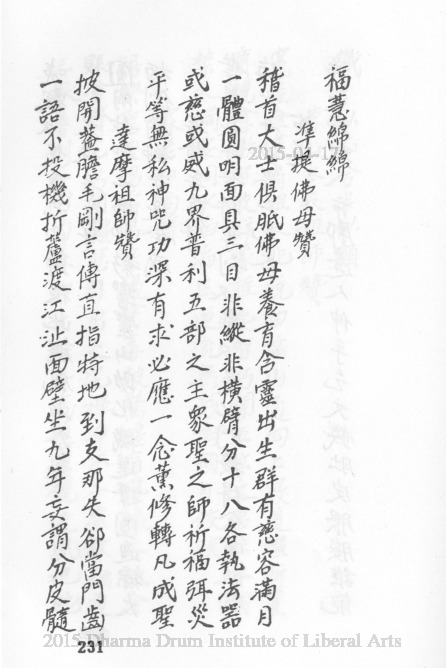 福慧綿綿
準提佛母贊
稽首大士俱胝佛母養育含靈出生群有慈容滿月
一體圓明面具三目非縱非橫臂分十八各執法器
或慈或威九界普利五部之主眾聖之師祈福弭災
平等無私神咒功深有求必應一念薰修轉凡成聖
達摩祖師贊
披開蓋膽毛剛言傳直指特地到支那失卻當門齒
一語不投機折蘆渡江沚面壁坐九年妄謂分皮髓
2015
2015 Dharma Drum Institute of Liberal Arts
231